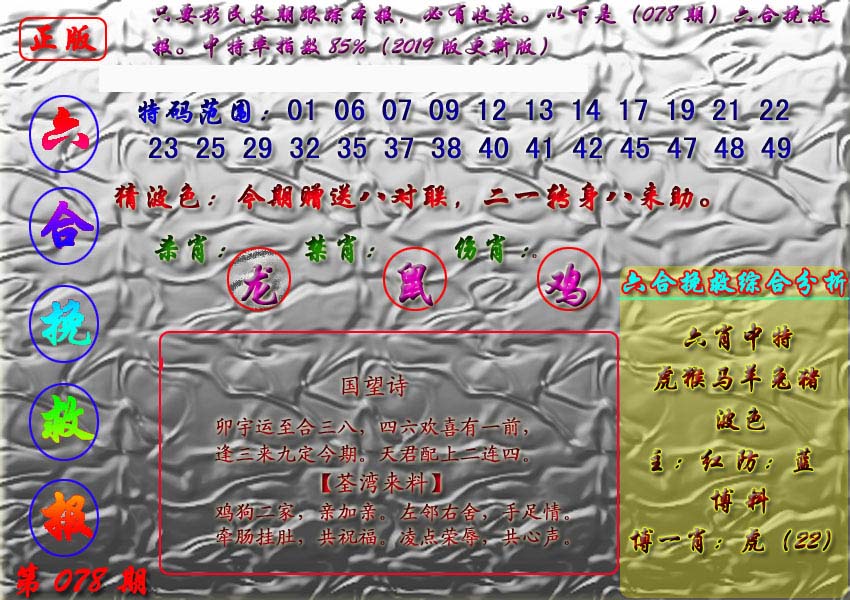 正版
只要彩民长期跟踪本报，必有收获。以下是（078期）六合挽救
报。中特率指数85%（2019版更新版）
六合挽救报
特码范围：01 06 07 09 12 13 14 17 19 21 22
23 25 29 32 35 37 38 40 41 42 45 47 48 49
猜波色：今期赠送八对联，二一转身八来助。
杀肖：龙 禁肖：鼠 伤肖：鸡
国望诗
卯宇运至合三八，四六欢喜有一前，
逢三来九定今期。天君配上二连四。
【荃湾来料】
鸡狗二家，亲加亲。左邻右舍，手足情。
牵肠挂肚，共祝福。凌点荣辱，共心声。
六合挽救综合分析
六肖中特
虎猴马羊兔猪
波色
主：红防：蓝
博料
博一肖：虎（22）
第078期